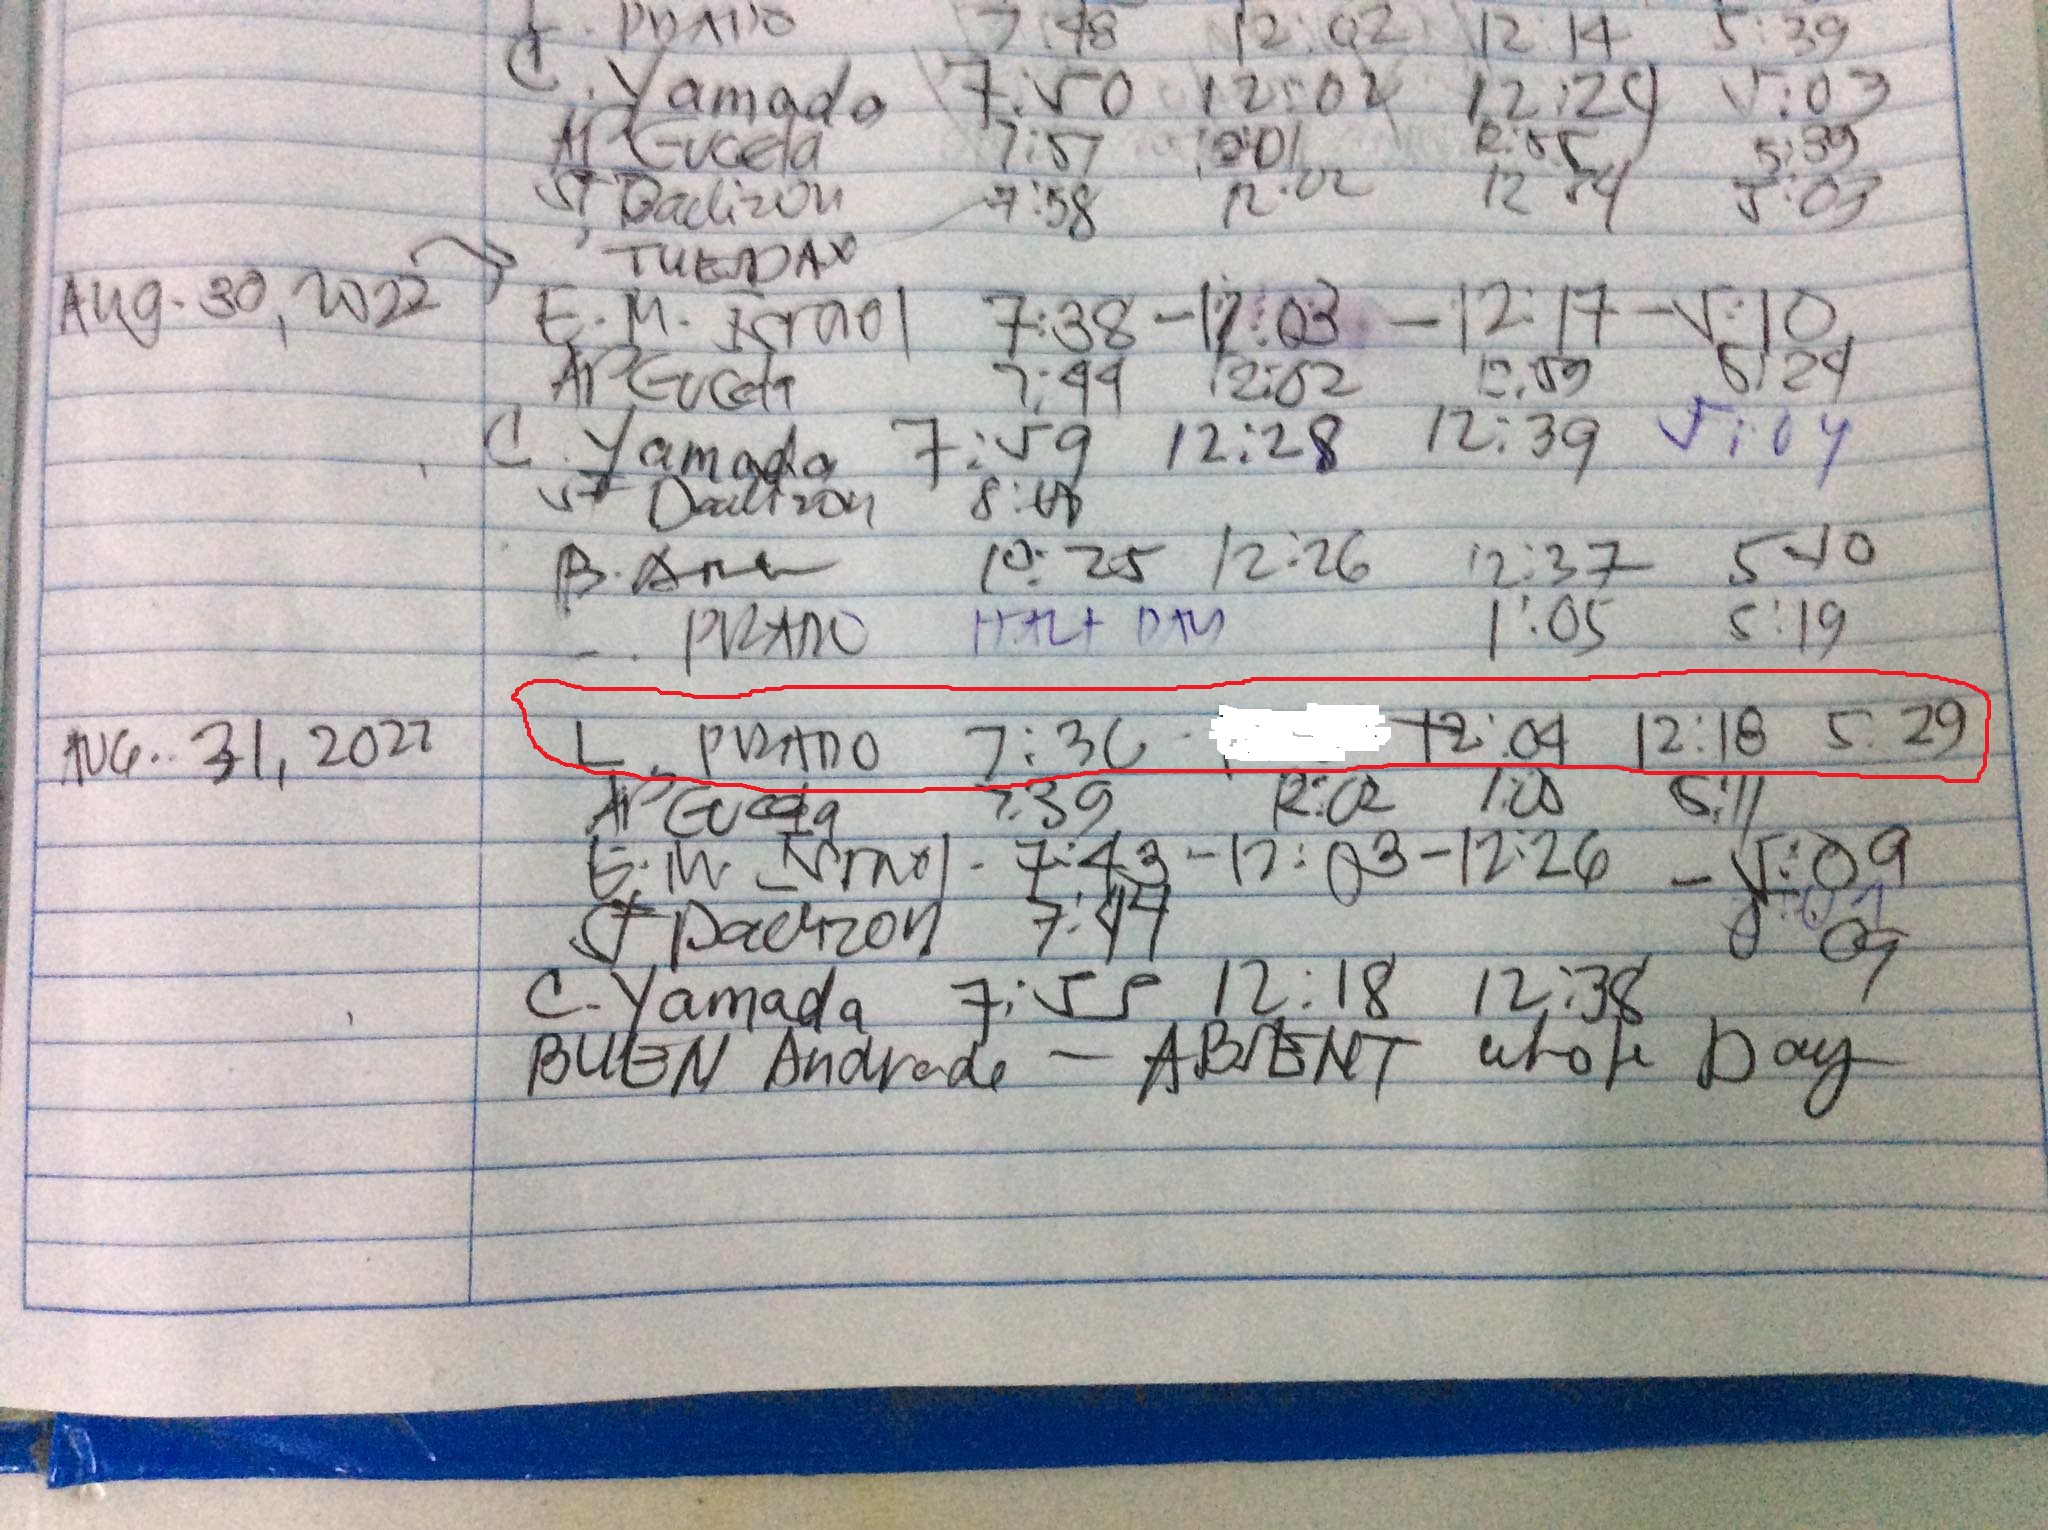 L. PRADO 7:48 12:02 12:14 5:39
C. Yamada 7:50 12:02 12:24 5:03
AP Guceta 7:57 12:01 12:55 5:39
Daclizon 7:58 12:02 12 54 5:03
TUESDAY
Aug. 30, 2022 E. M. Israel 7:38 - 12:03 - 12:17 - 5:10
AP Guceta 7:44 12:02 12:59 5:24
C. Yamada 7:59 12:28 12:39 5:04
Daclizon
B. 10:25 12:26 12:37 5:10
PRADO HALF DAY 1:05 5:19
AUG. 31, 2022 L. PRADO 7:36 12:04 12:18 5:29
AP Guceta 7:39 12:02 1:00 5:11
E. M. Israel - 7:43 - 12:03 - 12:26 - 5:09
Daclizon 7:44 09
C. Yamada 7:55 12:18 12:38
BUEN Andrade - ABSENT whole Day